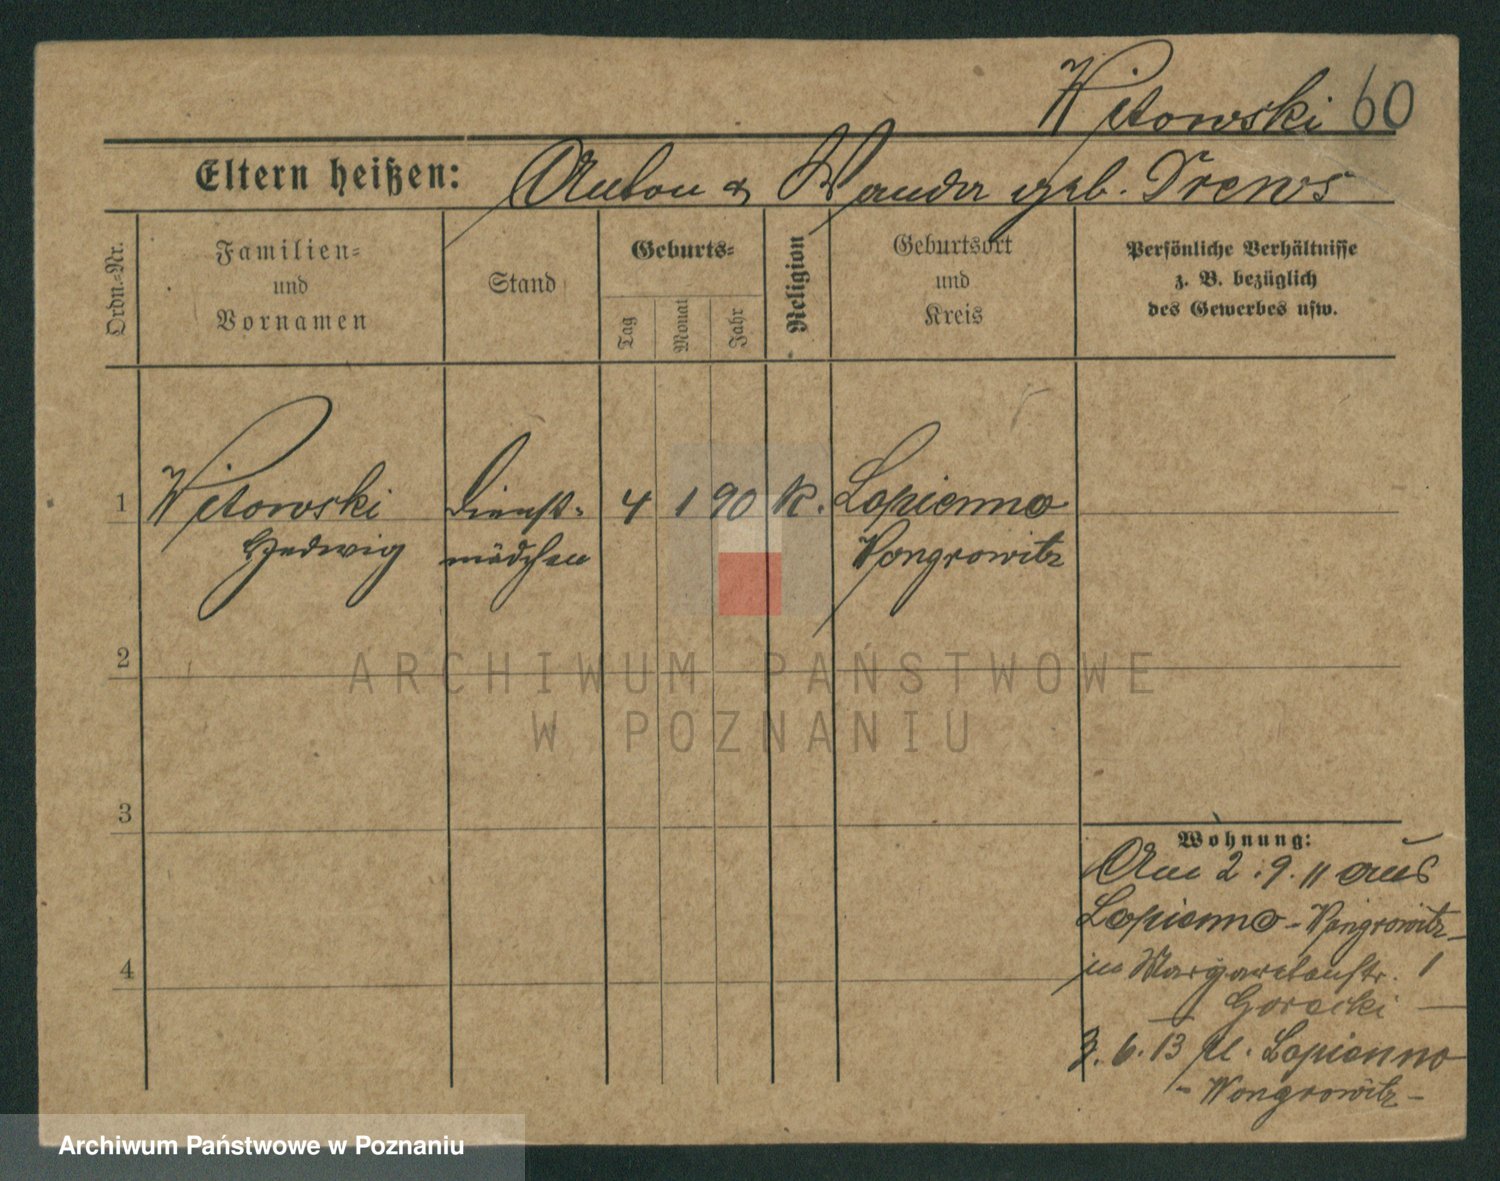 Witowski 60
Eltern heißen: Anton & Wanda geb. Drews
Ordn.-Nr.
Familien-
und
Vornamen
Stand
Geburts-
Tag
Monat
Jahr
Religion
Geburtsort
und
Kreis
Persönliche Verhältnisse
z. B. bezüglich
des Gewerbes usw.
1 Witowski Dienst- 4 1 90 K. Lopienno
Hedwig mädchen Wongrowitz
2
ARCHIWUM PAŃSTWOWE
W POZNANIU
3
Wohnung:
Am 2.9.11 aus
Lopienno - Wongrowitz -
in Margaretenstr. 1
Gorecki —
3.6.13 Lopienno
- Wongrowitz -
4
Archiwum Państwowe w Poznaniu